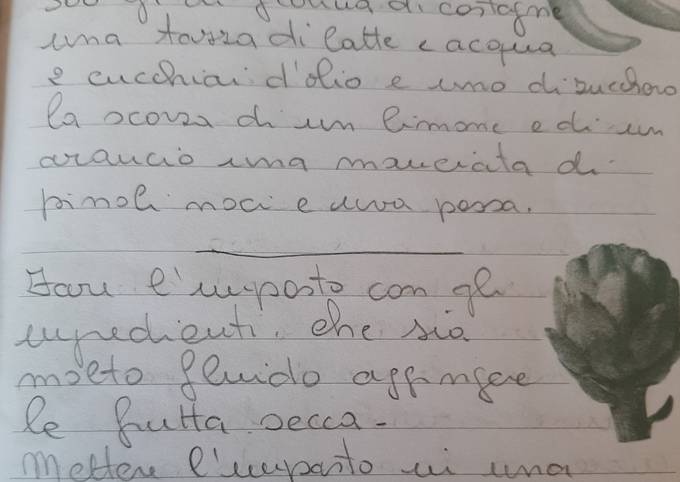 300 gr di farina di castagne
una tazza di latte e acqua
2 cucchiai d'olio e uno di zucchero
la scorza di un limone e di un
arancio una manciata di
pinoli noci e uva passa.
Fare l'impasto con gli
ingredienti. che sia
molto fluido aggiungere
le frutta secca-
Mettere l'impasto in una